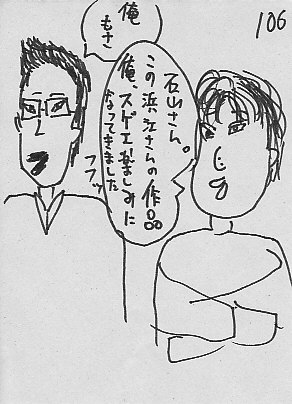 106
石山さん。
この浜江さんの作品
俺、スゲエ楽しみに
なってきました
フフッ
俺
もさ